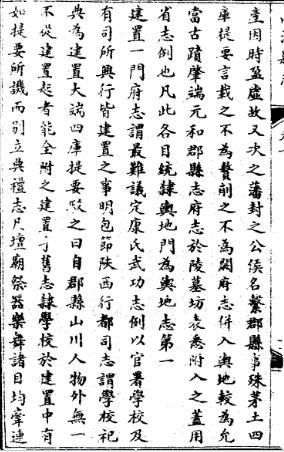 產因時盈虛故又次之藩封之公侯名繫郡縣事殊茅土四
庫提要言載之不為贅削之不為闕府志併入輿地較為允
當古蹟肇端元和郡縣志府志於陵墓坊表悉附入之蓋用
省志例也凡此各目統隸輿地門為輿地志第一
建置一門府志謂最難議定康氏武功志例以官署學校及
有司所興行皆建置之事明包節陝西行都司志謂學校祀
典為建置大端四庫提要駁之曰自郡縣山川人物外無一
不從建置起者能全附之建置乎舊志隸學校於建置中有
如提要所譏而別立典禮志凡壇廟祭器樂舞諸目均牽連